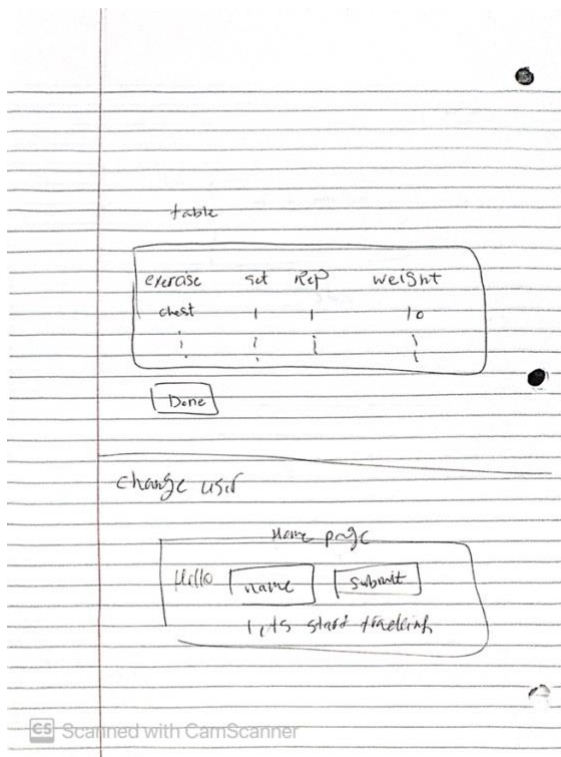 table
exercise set Rep weight
chest 1 1 10
Done
change user
Home page
Hello name submit
lets start tracking
CS Scanned with CamScanner